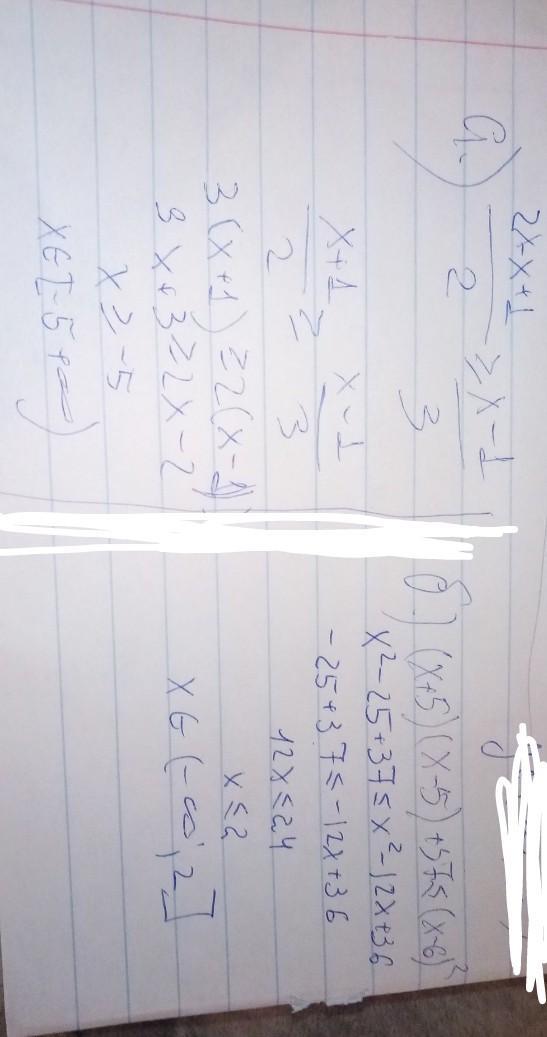 а.) 2x-x+1/2 ≥ x-1/3
x+1/2 ≥ x-1/3
3(x+1) ≥ 2(x-1)
3x+3 ≥ 2x-2
x ≥ -5
x∈[-5+∞)
б.) (x+5)(x-5)+37≤(x-6)²
x²-25+37≤x²-12x+36
-25+37≤-12x+36
12x≤24
x≤2
x∈(-∞;2]